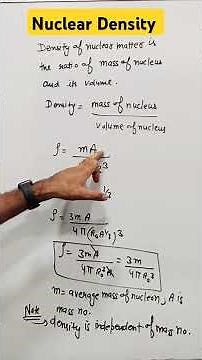 Nuclear Density
Density of nuclear matter is
the ratio of mass of nucleus
and its volume.
Density = mass of nucleus
volume of nucleus
ρ = mA
ρ = 3mA
4π(R₀A^1/3)³
ρ = 3mA / 4πR₀³A = 3m / 4πR₀³
m = average mass of nucleon, A is
mass no.
Note density is independent of mass no.